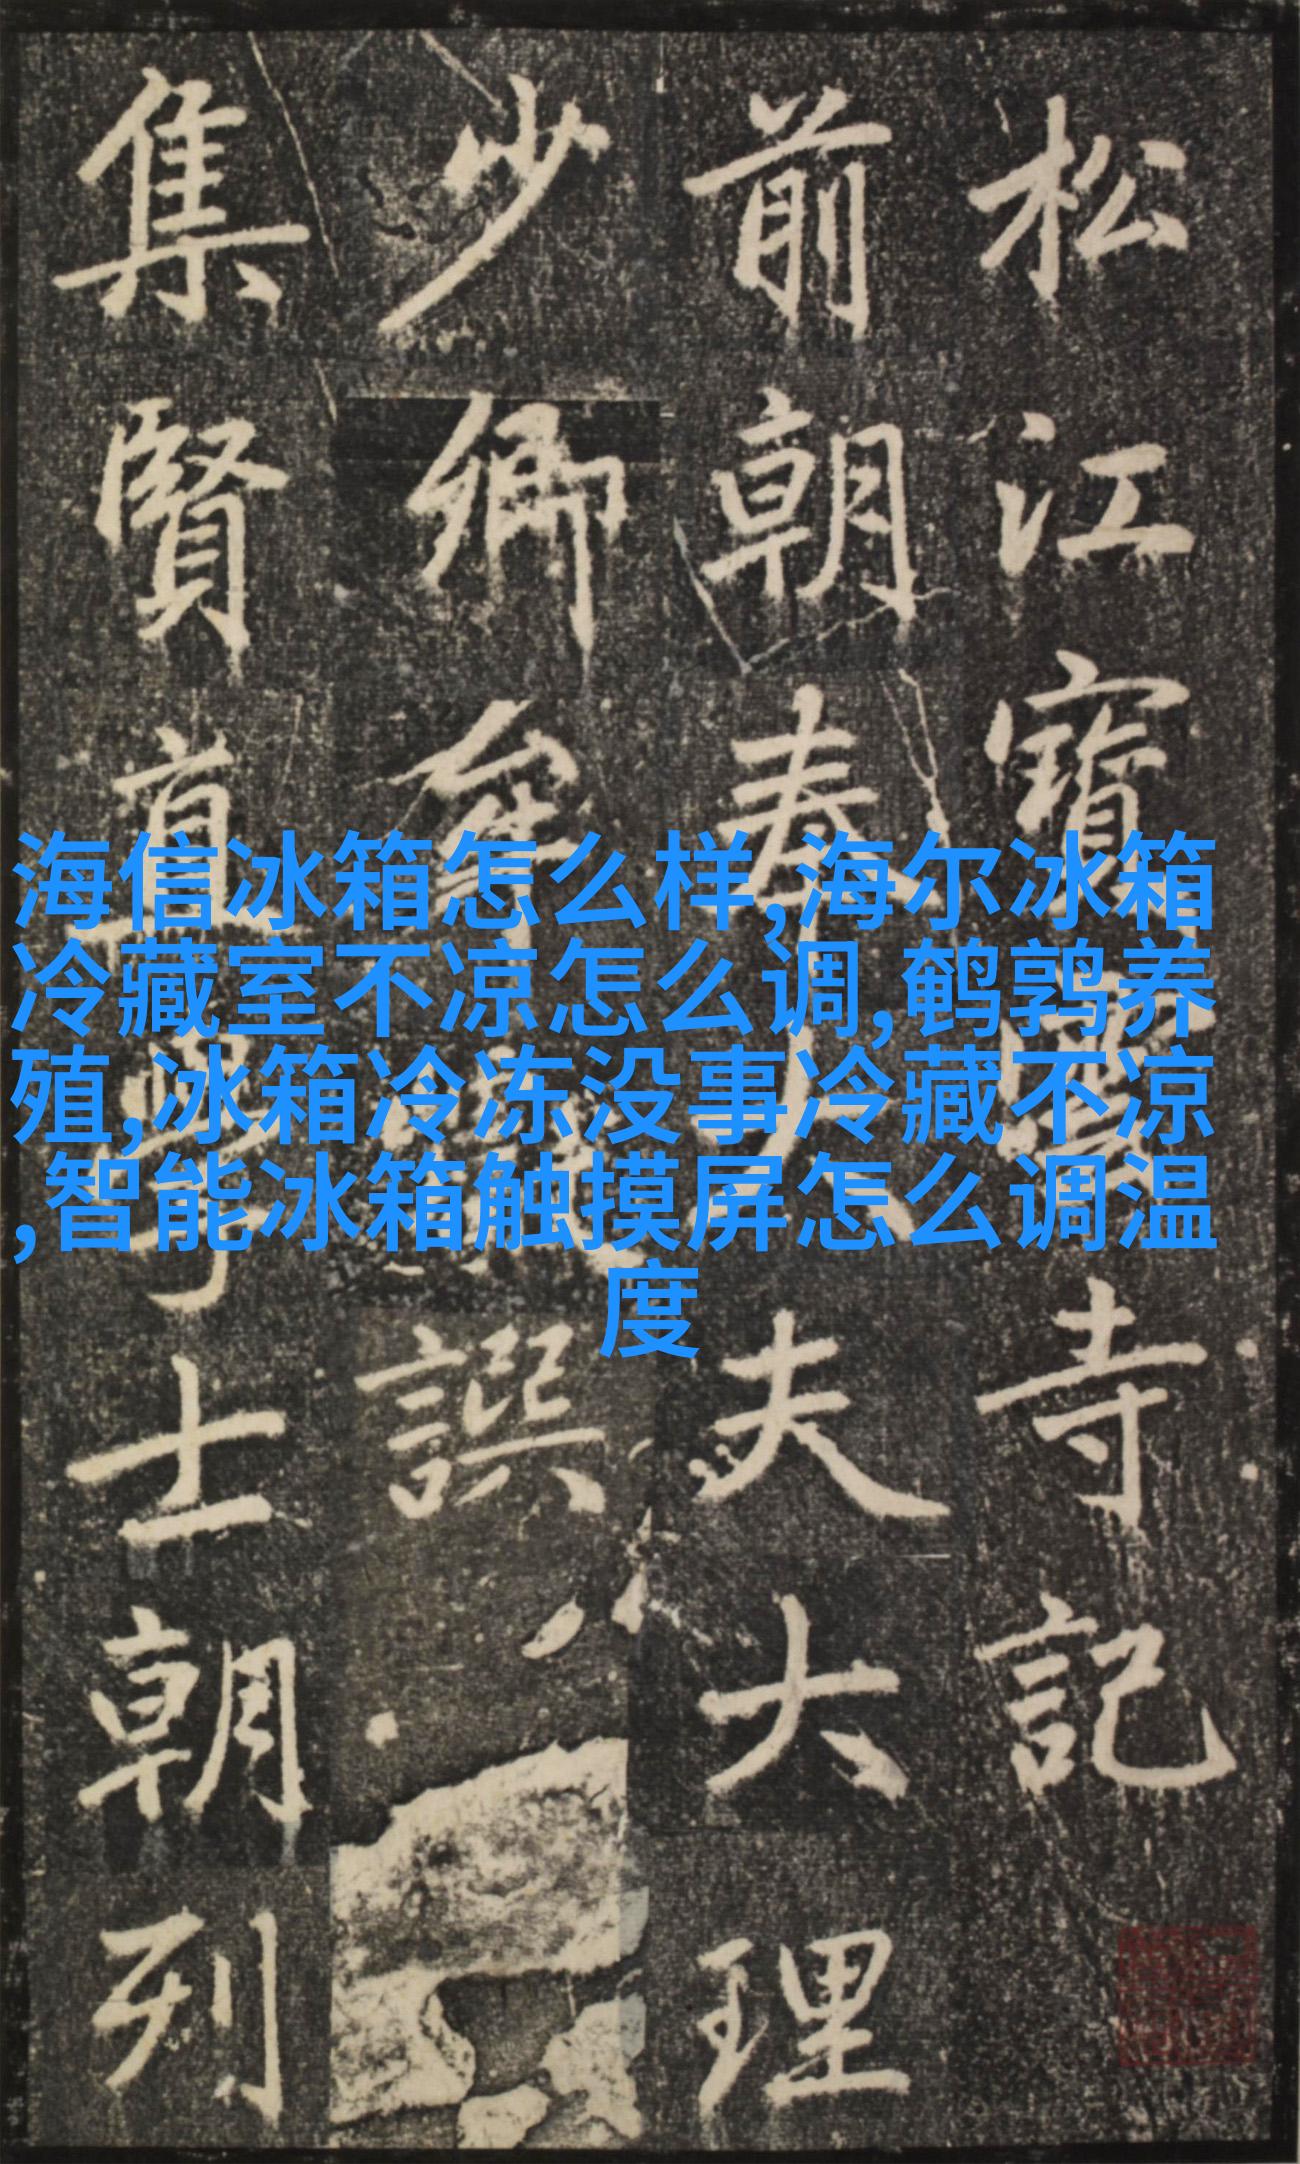 松江寶雲寺記
前朝奉大夫大理
少卿牟譔
集賢直學士朝列
海信冰箱怎么样,海尔冰箱
冷藏室不凉怎么调,鹌鹑养
殖,冰箱冷冻没事冷藏不凉
,智能冰箱触摸屏怎么调温
度